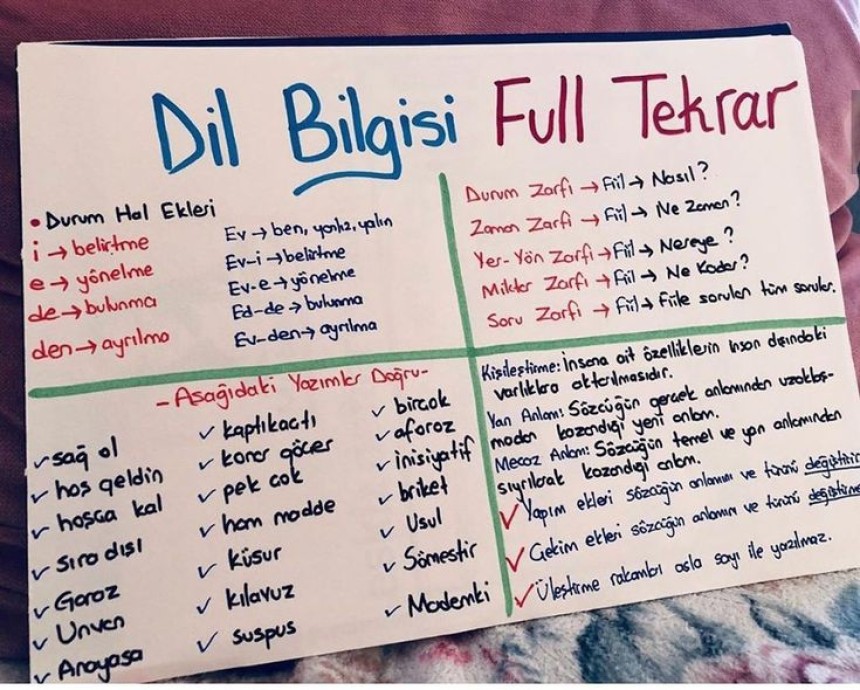 Dil Bilgisi Full Tekrar
• Durum Hal Ekleri
i → belirtme
e → yönelme
de → bulunma
den → ayrılma
Ev → ben, yanlız, yalın
Ev-i → belirtme
Ev-e → yönelme
Ed-de → bulunma
Ev-den → ayrılma
Durum Zarfı → Fiil → Nasıl?
Zaman Zarfı → Fiil → Ne Zaman?
Yer-Yön Zarfı → Fiil → Nereye?
Miktar Zarfı → Fiil → Ne Kadar?
Soru Zarfı → Fiil → Fiile sorulan tüm sorular.
-Aşağıdaki Yazımlar Doğru-
✓ sağ ol
✓ hoş geldin
✓ hoşça kal
✓ sıra dışı
✓ Garaz
✓ Unvan
✓ Anayasa
✓ kaptıkaçtı
✓ konar göçer
✓ pek çok
✓ ham madde
✓ küsur
✓ kılavuz
✓ suspus
✓ birçok
✓ aforoz
✓ inisiyatif
✓ briket
✓ Usul
✓ Sömestir
✓ Mademki
Kişileştirme: İnsana ait özelliklerin insan dışındaki
varlıklara aktarılmasıdır.
Yan Anlam: Sözcüğün gerçek anlamından uzaklaş-
madan kazandığı yeni anlam.
Mecaz Anlam: Sözcüğün temel ve yan anlamından
sıyrılarak kazandığı anlam.
✓ Yapım ekleri sözcüğün anlamını ve türünü değiştirir
✓ Çekim ekleri sözcüğün anlamını ve türünü değiştirme
✓ Üleştirme rakamları asla sayı ile yazılmaz.